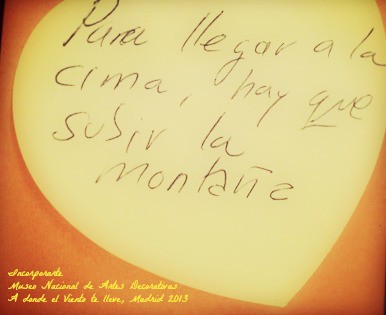 Para llegar a la
cima, hay que
subir la
montaña
Incorporarte
Museo Nacional de Artes Decorativas
A donde el Viento te lleve, Madrid 2013